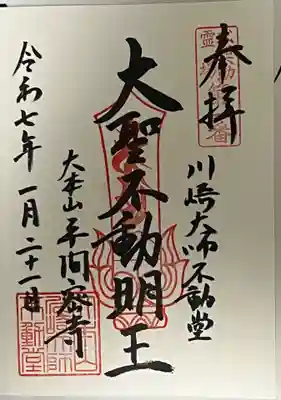 奉拝
川崎大師不動堂
大聖不動明王
大本山平间密寺
令和七年一月二十一日